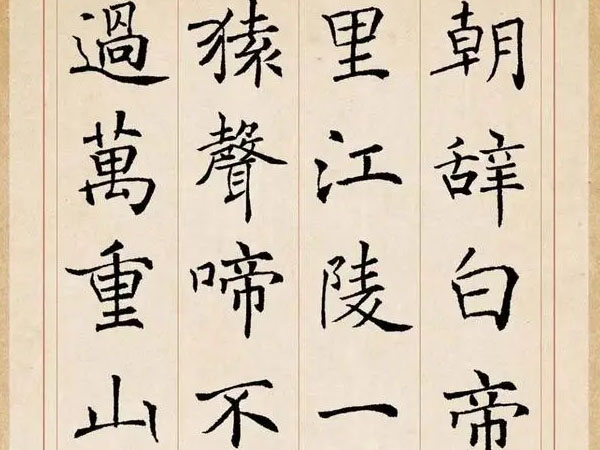 朝辞白帝
里江陵一
猿聲啼不
過萬重山